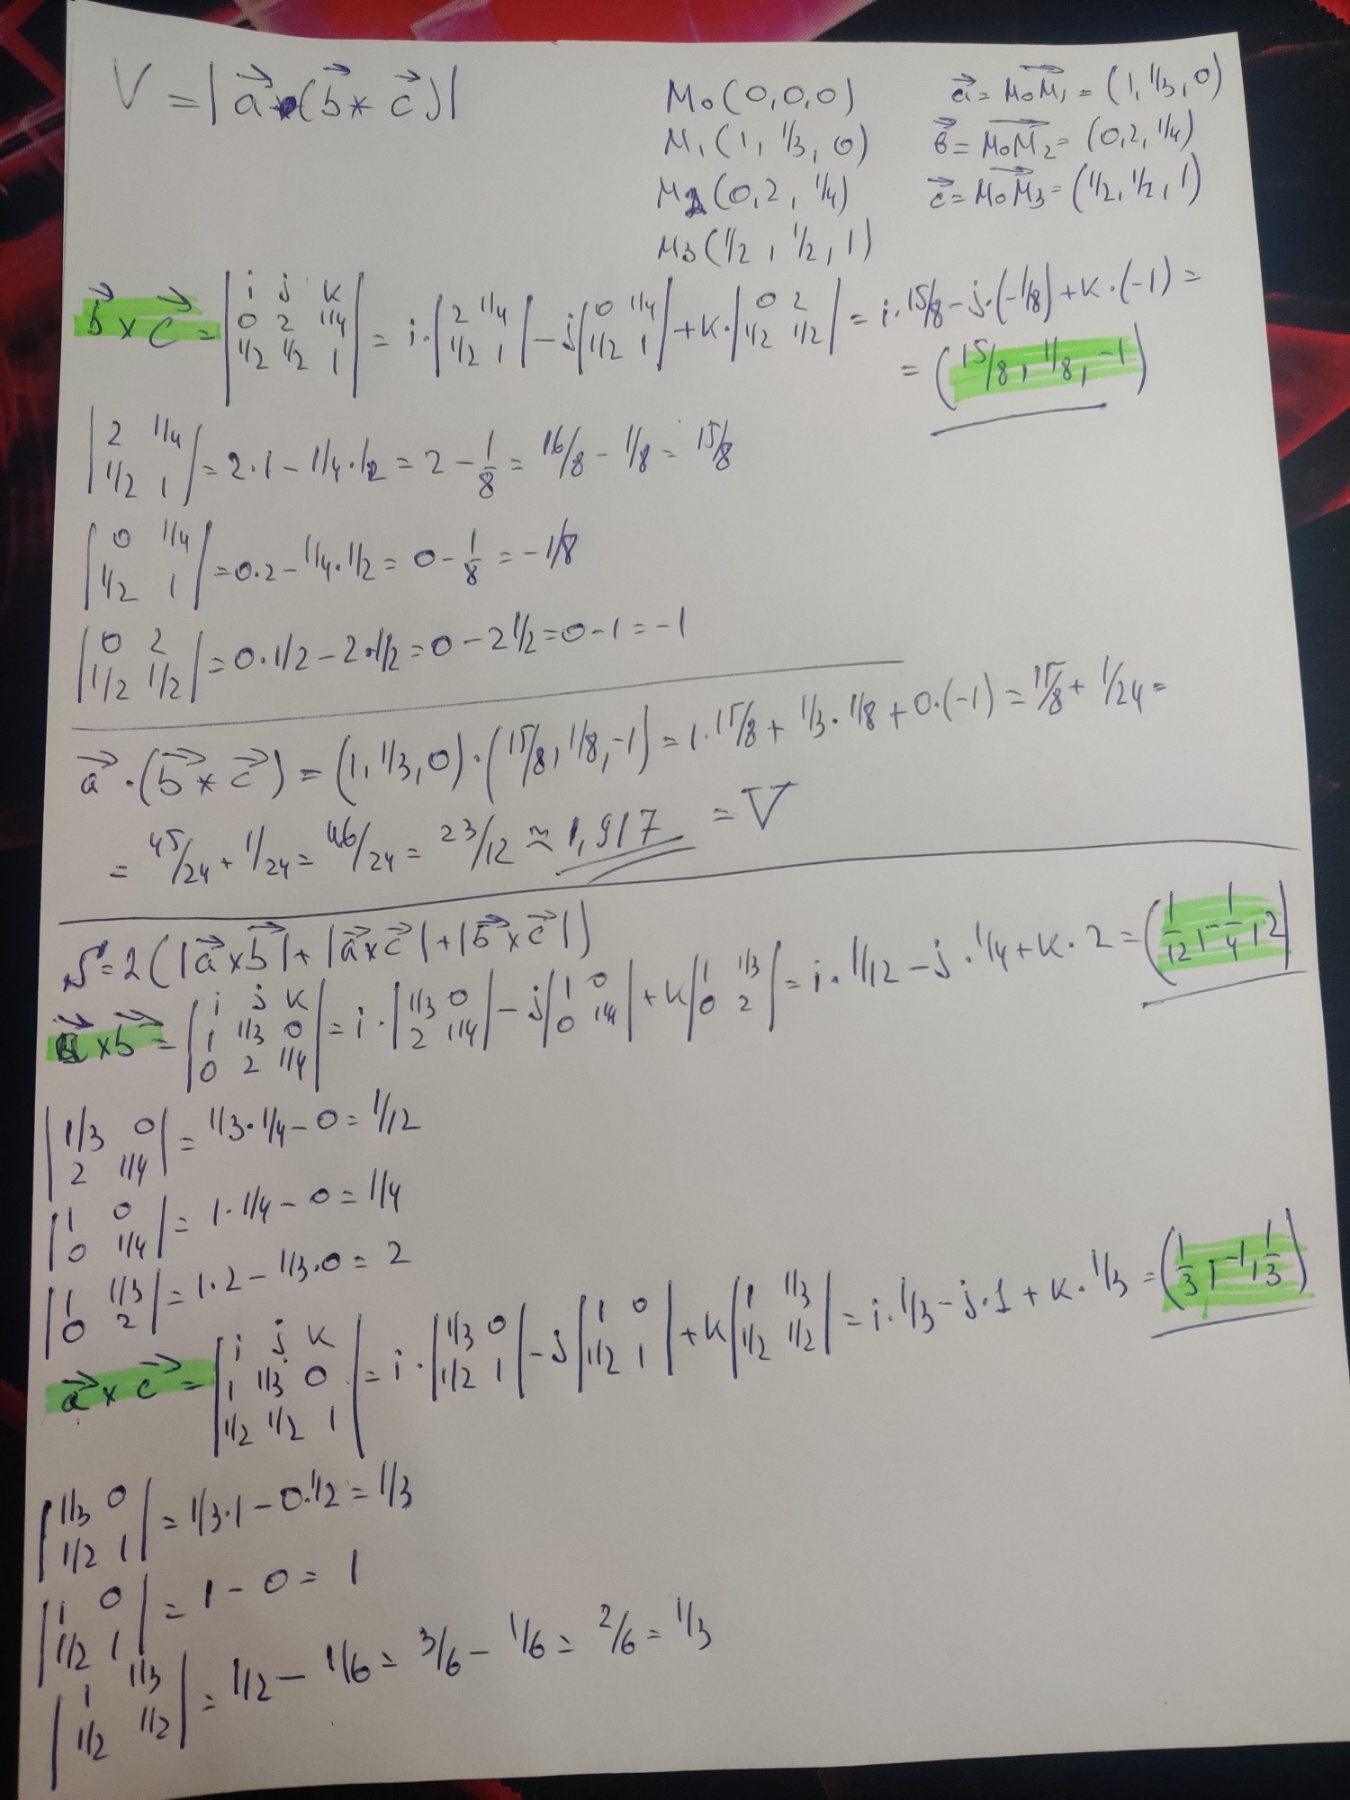 V = |a⃗·(b⃗ * c⃗)|
M₀(0,0,0)
M₁(1, 1/3, 0)
M₂(0,2, 1/4)
M₃(1/2, 1/2, 1)
a⃗ = M₀M₁ = (1, 1/3, 0)
в⃗ = M₀M₂ = (0,2, 1/4)
c⃗ = M₀M₃ = (1/2, 1/2, 1)
b⃗ × c⃗ = |i j k; 0 2 1/4; 1/2 1/2 1| = i·|2 1/4; 1/2 1| - j|0 1/4; 1/2 1| + k·|0 2; 1/2 1/2| = i·15/8 - j·(-1/8) + k·(-1) =
= (15/8, 1/8, -1)
|2 1/4; 1/2 1| = 2·1 - 1/4·1/2 = 2 - 1/8 = 16/8 - 1/8 = 15/8
|0 1/4; 1/2 1| = 0·2 - 1/4·1/2 = 0 - 1/8 = -1/8
|0 2; 1/2 1/2| = 0·1/2 - 2·1/2 = 0 - 2 1/2 = 0 - 1 = -1
a⃗·(b⃗ * c⃗) = (1, 1/3, 0)·(15/8, 1/8, -1) = 1·15/8 + 1/3·1/8 + 0·(-1) = 15/8 + 1/24 =
= 45/24 + 1/24 = 46/24 = 23/12 ≈ 1,917 = V
S = 2(|a⃗×b⃗| + |a⃗×c⃗| + |b⃗×c⃗|)
a⃗ × b⃗ = |i j k; 1 1/3 0; 0 2 1/4| = i·|1/3 0; 2 1/4| - j|1 0; 0 1/4| + k|1 1/3; 0 2| = i·1/12 - j·1/4 + k·2 = (1/12, -1/4, 2)
|1/3 0; 2 1/4| = 1/3·1/4 - 0 = 1/12
|1 0; 0 1/4| = 1·1/4 - 0 = 1/4
|1 1/3; 0 2| = 1·2 - 1/3·0 = 2
a⃗ × c⃗ = |i j k; 1 1/3 0; 1/2 1/2 1| = i·|1/3 0; 1/2 1| - j|1 0; 1/2 1| + k|1 1/3; 1/2 1/2| = i·1/3 - j·1 + k·1/3 = (1/3, -1, 1/3)
|1/3 0; 1/2 1| = 1/3·1 - 0·1/2 = 1/3
|1 0; 1/2 1| = 1 - 0 = 1
|1 1/3; 1/2 1/2| = 1/2 - 1/6 = 3/6 - 1/6 = 2/6 = 1/3